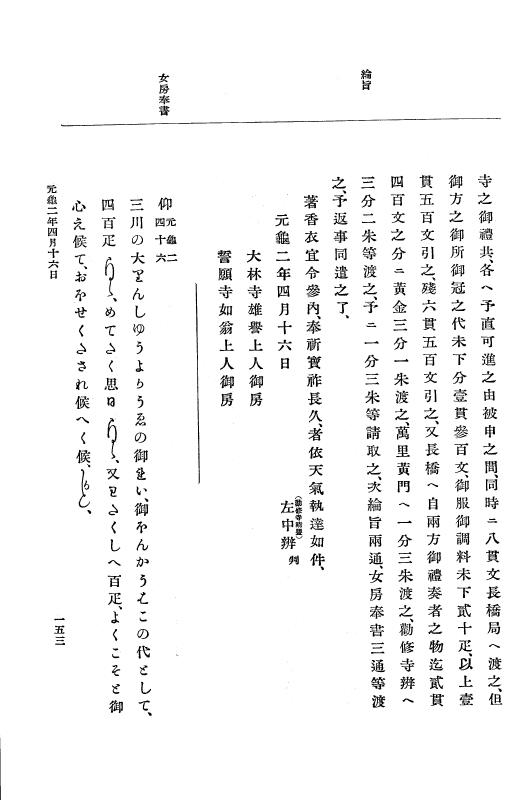 綸旨
女房奉書
寺之御禮共、各へ予直可進之由被申之間、同時ニ八貫文長橋局へ渡之、但
御方之御所御冠之代未下分壹貫參百文、御服御調料未下貳十疋、以上壹
貫五百文引之、殘六貫五百文引之、又長橋へ自兩方御禮奏者之物迄貳貫
四百文之分ニ黃金三分一朱渡之、萬里黃門へ一分三朱渡之、勸修寺辨へ
三分二朱等渡之、予ニ一分三朱等請取之、次綸旨兩通、女房奉書三通等渡
之、予返事同遣之了、
著香衣宜令參內、奉祈寶祚長久、者依天氣執達如件、
元龜二年四月十六日
(勸修寺晴豐)
左中辨判
大林寺雄譽上人御房
誓願寺如翁上人御房
仰 元龜二 四十六
三川の大しゆうよりうゑの御、御かうこの代として、
四百疋、めてたく思、又たくしへ百疋、よくこそと御
心え候て、おほせくたされ候へく候、
元龜二年四月十六日
一五三